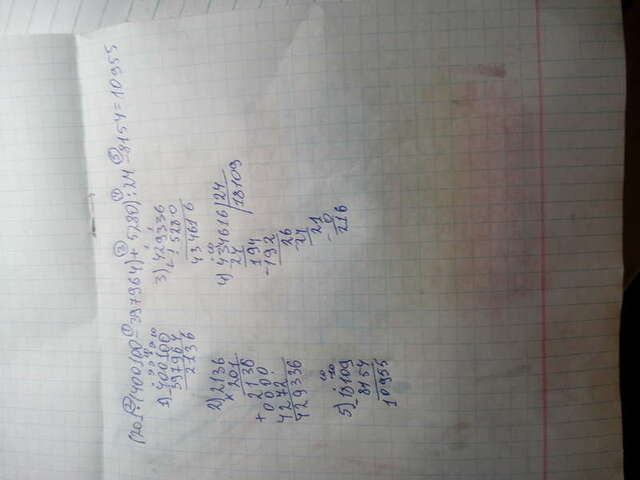 (201·(400100-397964)+5280):24-8154=10955
1) 400100
-397964
2136
2) 2136
×201
2136
+0000
4272
429336
3) 429336
+5280
434616
4) 434616|24
-24 |18109
194
-192
26
-24
21
-0
216
5) 18109
-8154
10955